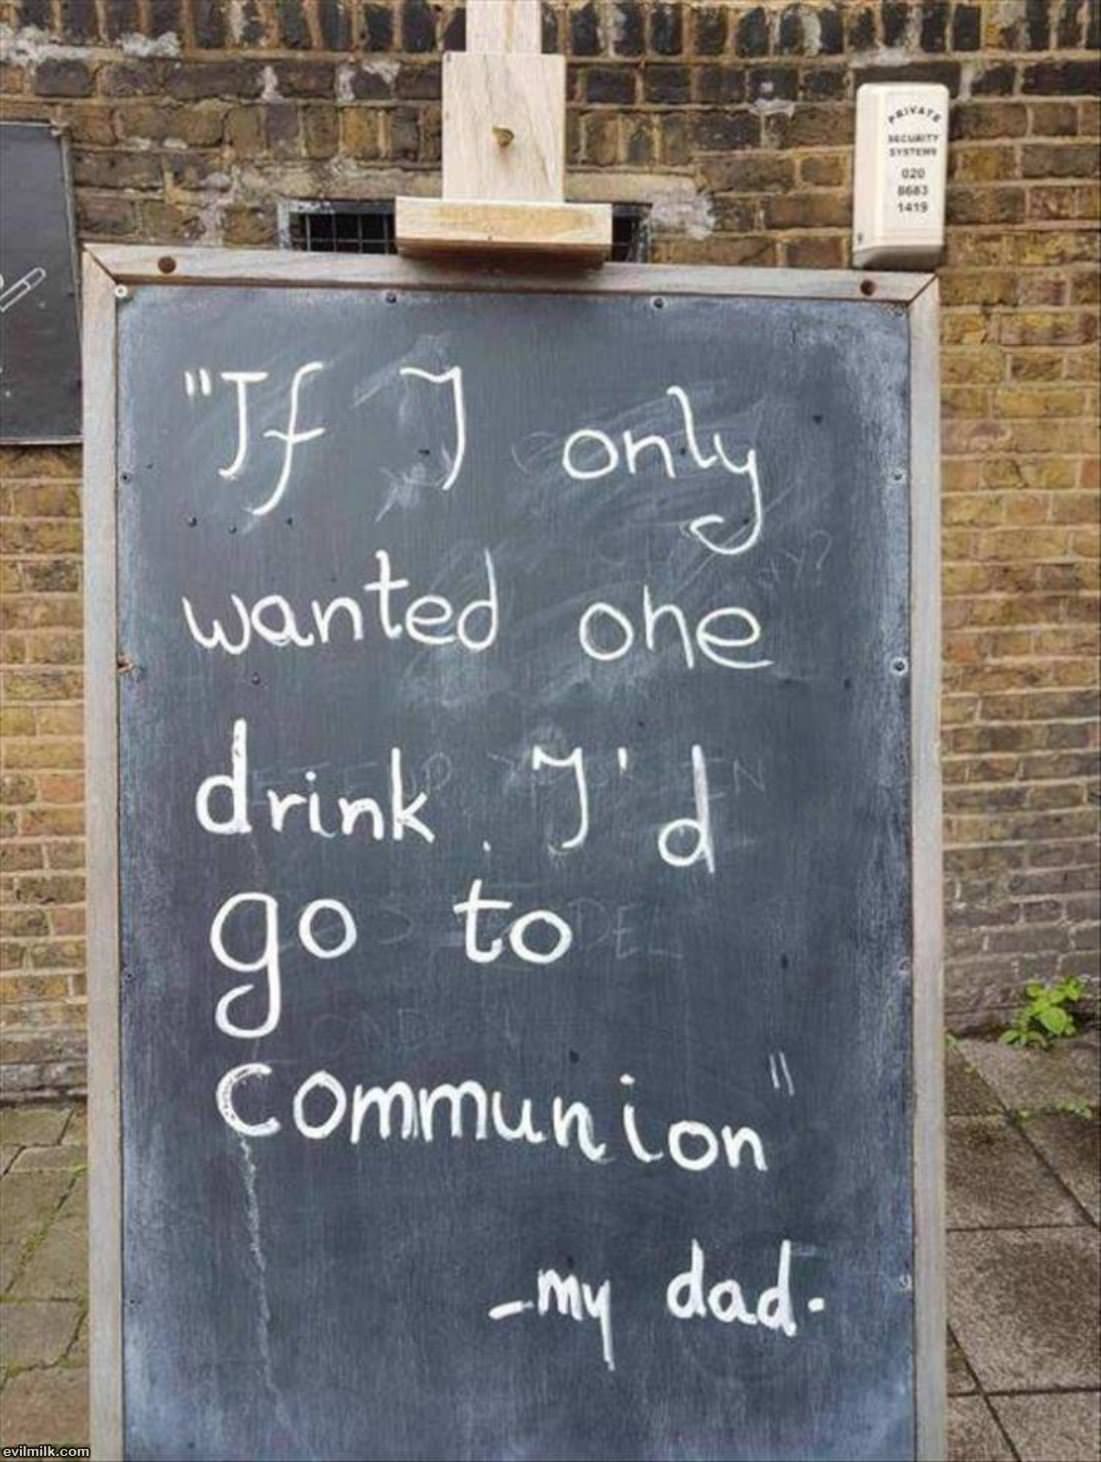 PRIVATE
SECURITY
SYSTEMS
020
8683
1419
"If I only
wanted one
drink. I'd
go to
communion"
-my dad.
evilmilk.com